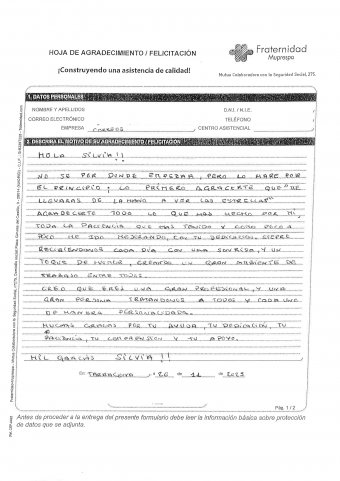 HOJA DE AGRADECIMIENTO / FELICITACIÓN
Fraternidad
Muprespa
¡Construyendo una asistencia de calidad!
Mutua Colaboradora con la Seguridad Social, 275
1. DATOS PERSONALES
NOMBRE Y APELLIDOS
D.N.I. / N.I.E.
CORREO ELECTRÓNICO
TELÉFONO
EMPRESA CORREOS
CENTRO ASISTENCIAL
2. DESCRIBA EL MOTIVO DE SU AGRADECIMIENTO / FELICITACIÓN
HOLA SILVIA!!
NO SE POR DONDE EMPEZAR, PERO LO HARE POR
EL PRINCIPIO; LO PRIMERO AGRACERTE QUE "ME
LLEVARAS DE LA MANO A VER LAS ESTRELLAS"
AGRADECERTE TODO LO QUE HAS HECHO POR MI,
TODA LA PACIENCIA QUE HAS TENIDO Y COMO POCO A
POCO HE IDO MEJORANDO, CON TU DEDICACION. SIEPRE
RECIBIENDONOS CADA DIA CON UNA SONRISA, Y UN
TOQUE DE HUMOR, CREANDO UN GRAN AMBIENTE DE
TRABAJO ENTRE TODOS.
CREO QUE ERES UNA GRAN PROFESIONAL, Y UNA
GRAN PERSONA TRATANDONOS A TODOS Y CADA UNO
DE MANERA PERSONALIZADA.
MUCHAS GRACIAS POR TU AYUDA, TU DEDICACION, TU
PACIENCIA, TU COMPRENSION Y TU APOYO.
MIL GRACIAS SILVIA!!
En TARRAGONA, 20 - 11 - 2025
Pág. 1 / 2
Antes de proceder a la entrega del presente formulario debe leer la Información básica sobre protección
de datos que se adjunta.